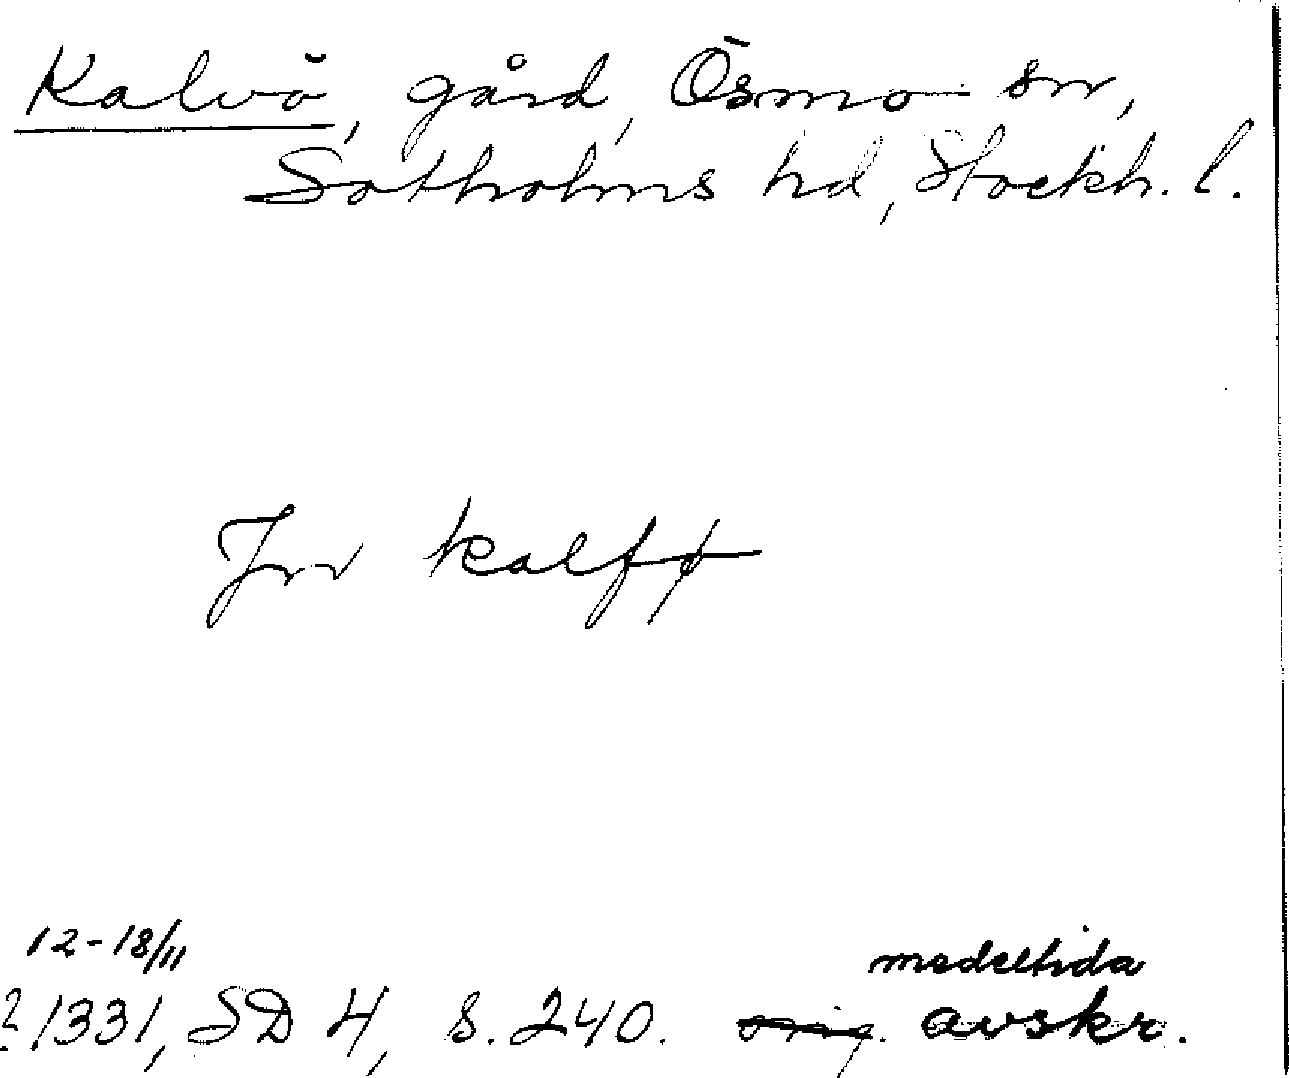 Kalvö, gård, Ösmo sn,
Sotholms hd, Stockh. l.
Jn kalfø
12-18/11
1331, SD 4, s. 240. orig. medeltida avskr.